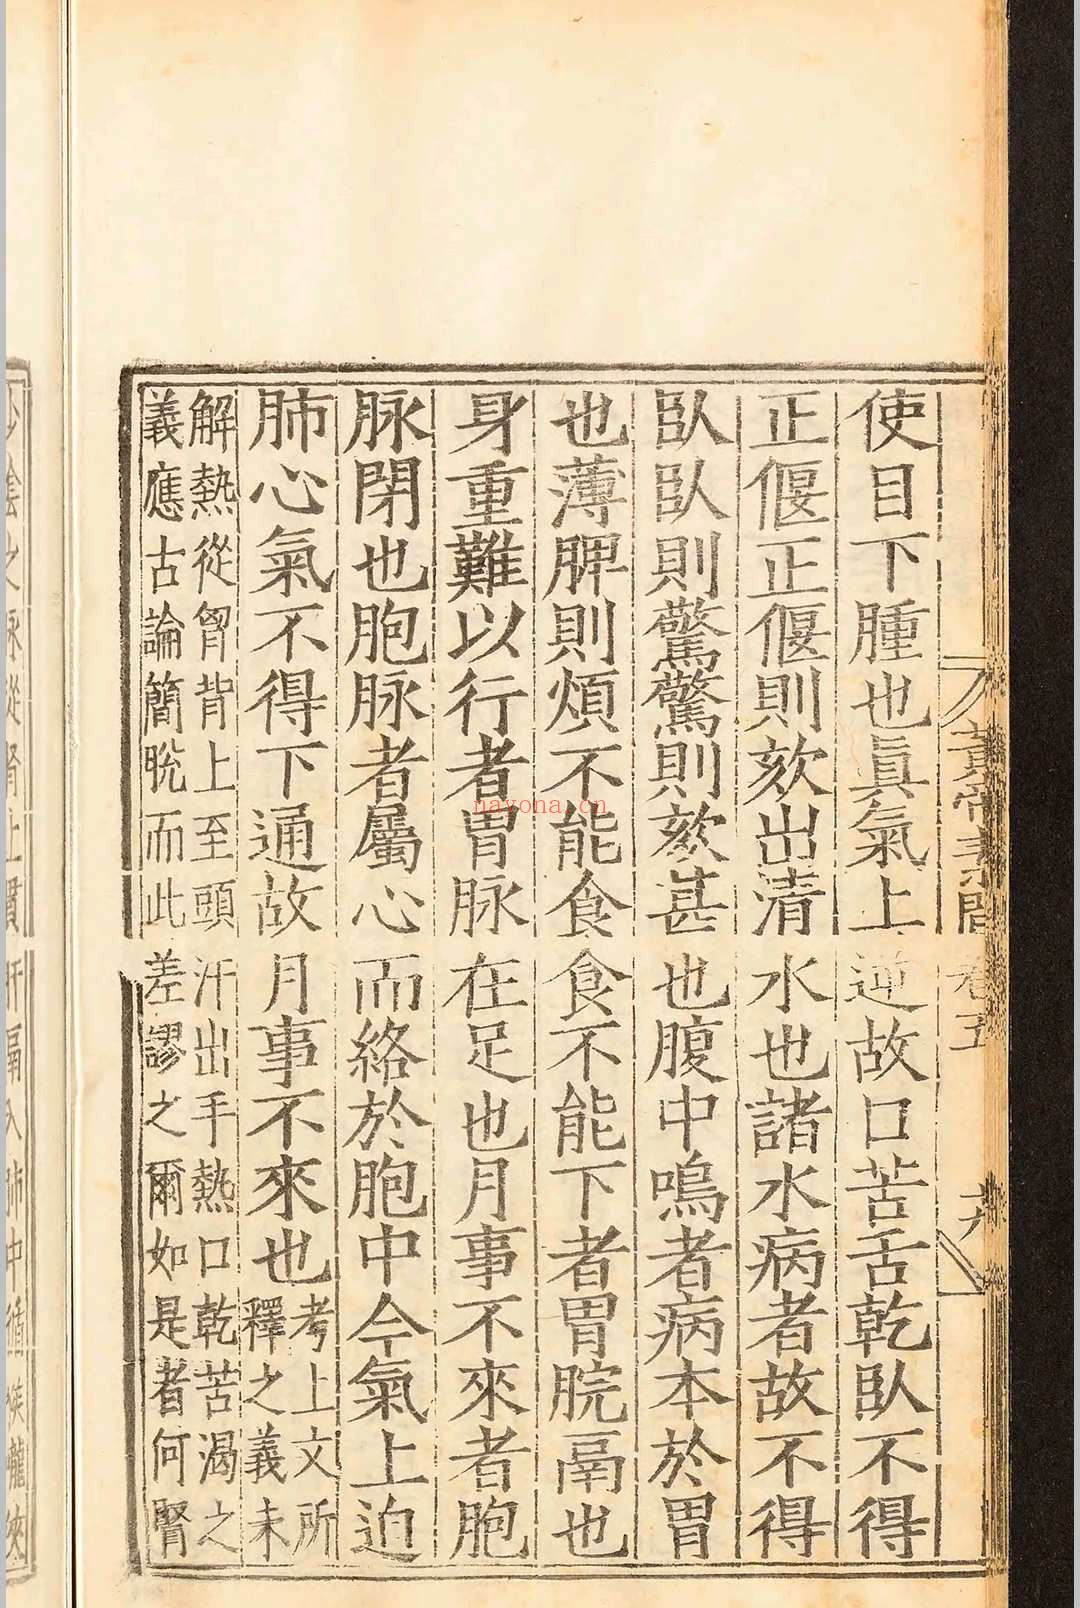 黃帝素問 卷五 六
使目下腫也眞氣上逆故口苦舌乾臥不得
正偃正偃則欬出清水也諸水病者故不得
臥臥則驚驚則欬甚也腹中鳴者病本於胃
也薄脾則煩不能食食不能下者胃脘鬲也
身重難以行者胃脉在足也月事不來者胞
脉閉也胞脉者屬心而絡於胞中今氣上迫
肺心氣不得下通故月事不來也考上文所
釋之義未
解熱從胷背上至頭汗出手熱口乾苦渴之
義應古論簡脫而此差謬之爾如是者何腎
少陰之脉從腎上貫肝鬲入肺中循喉嚨俠
nayona.cn